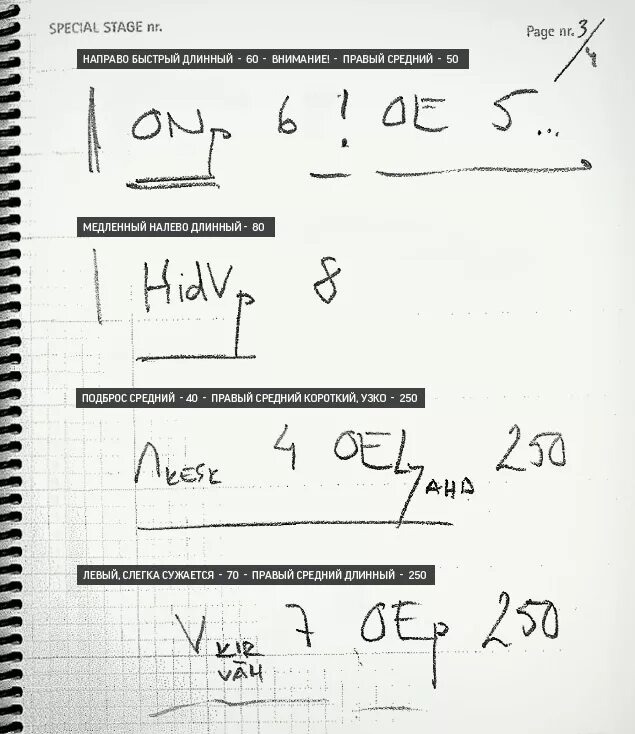 SPECIAL STAGE nr.
Page nr. 3/4
НАПРАВО БЫСТРЫЙ ДЛИННЫЙ - 60 - ВНИМАНИЕ! - ПРАВЫЙ СРЕДНИЙ - 50
ONp 6 ! OE 5...
МЕДЛЕННЫЙ НАЛЕВО ДЛИННЫЙ - 80
HidVp 8
ПОДБРОС СРЕДНИЙ - 40 - ПРАВЫЙ СРЕДНИЙ КОРОТКИЙ, УЗКО - 250
Λ KESK 4 OEL/AHD 250
ЛЕВЫЙ, СЛЕГКА СУЖАЕТСЯ - 70 - ПРАВЫЙ СРЕДНИЙ ДЛИННЫЙ - 250
V KIR VÄH 7 OEp 250